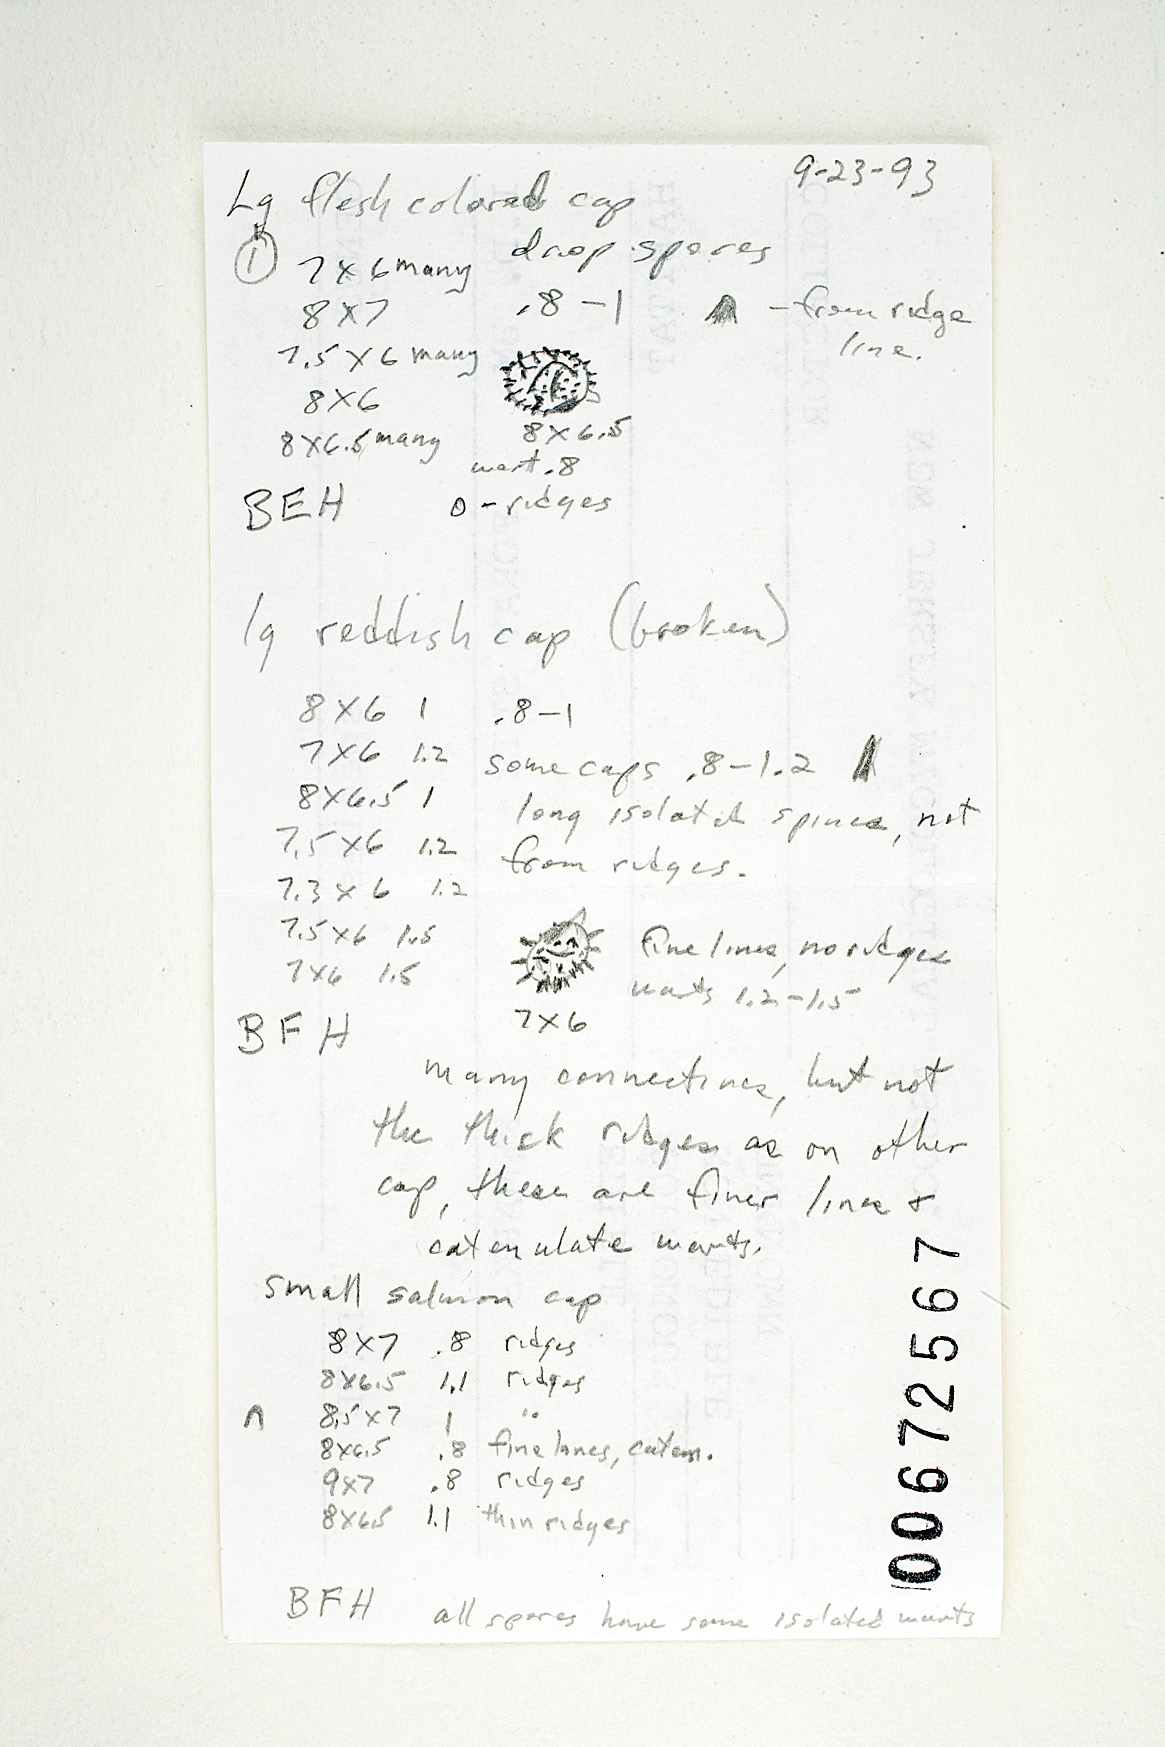 9-23-93
Lg flesh colored cap
drop spores
1 7x6 many
8x7 .8-1 -from ridge
line.
7.5x6 many
8x6
8x6.5 many 8x6.5
wart .8
BEH 0-ridges
lg reddish cap (broken)
8x6 1 .8-1
7x6 1.2 some caps .8-1.2
8x6.5 1 long isolated spines, not
7.5x6 1.2 from ridges.
7.3x6 1.2
7.5x6 1.5 fine lines, no ridges
7x6 1.5 warts 1.2-1.5
7x6
BFH
many connectives, but not
the thick ridges as on other
cap, these are finer lines &
catenulate warts.
small salmon cap
8x7 .8 ridges
8x6.5 1.1 ridges
8.5x7 1 "
8x6.5 .8 fine lines, caten.
9x7 .8 ridges
8x6.5 1.1 thin ridges
BFH all spores have some isolated warts
00672567